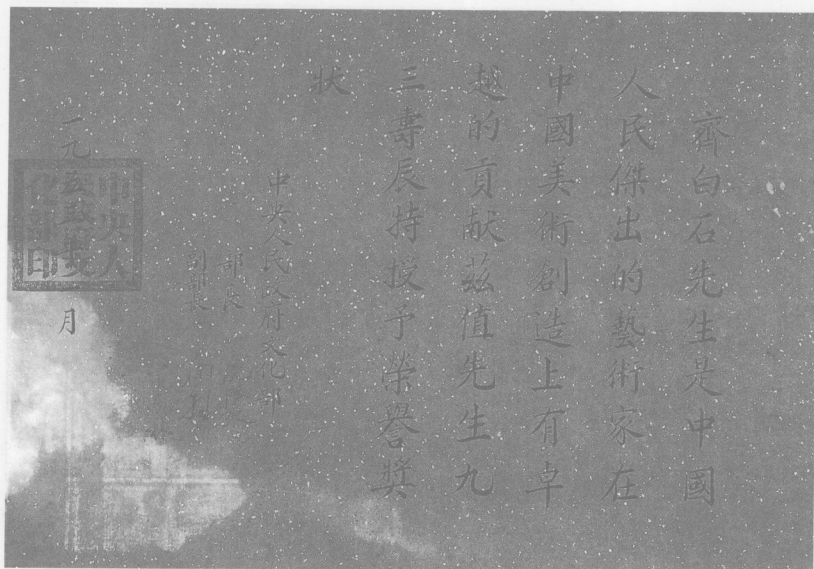 齊白石先生是中國
人民傑出的藝術家在
中國美術創造上有卓
越的貢献兹值先生九
三壽辰特授予榮譽獎
狀
中央人民政府文化部
部長
副部長
月
中央人
化部印